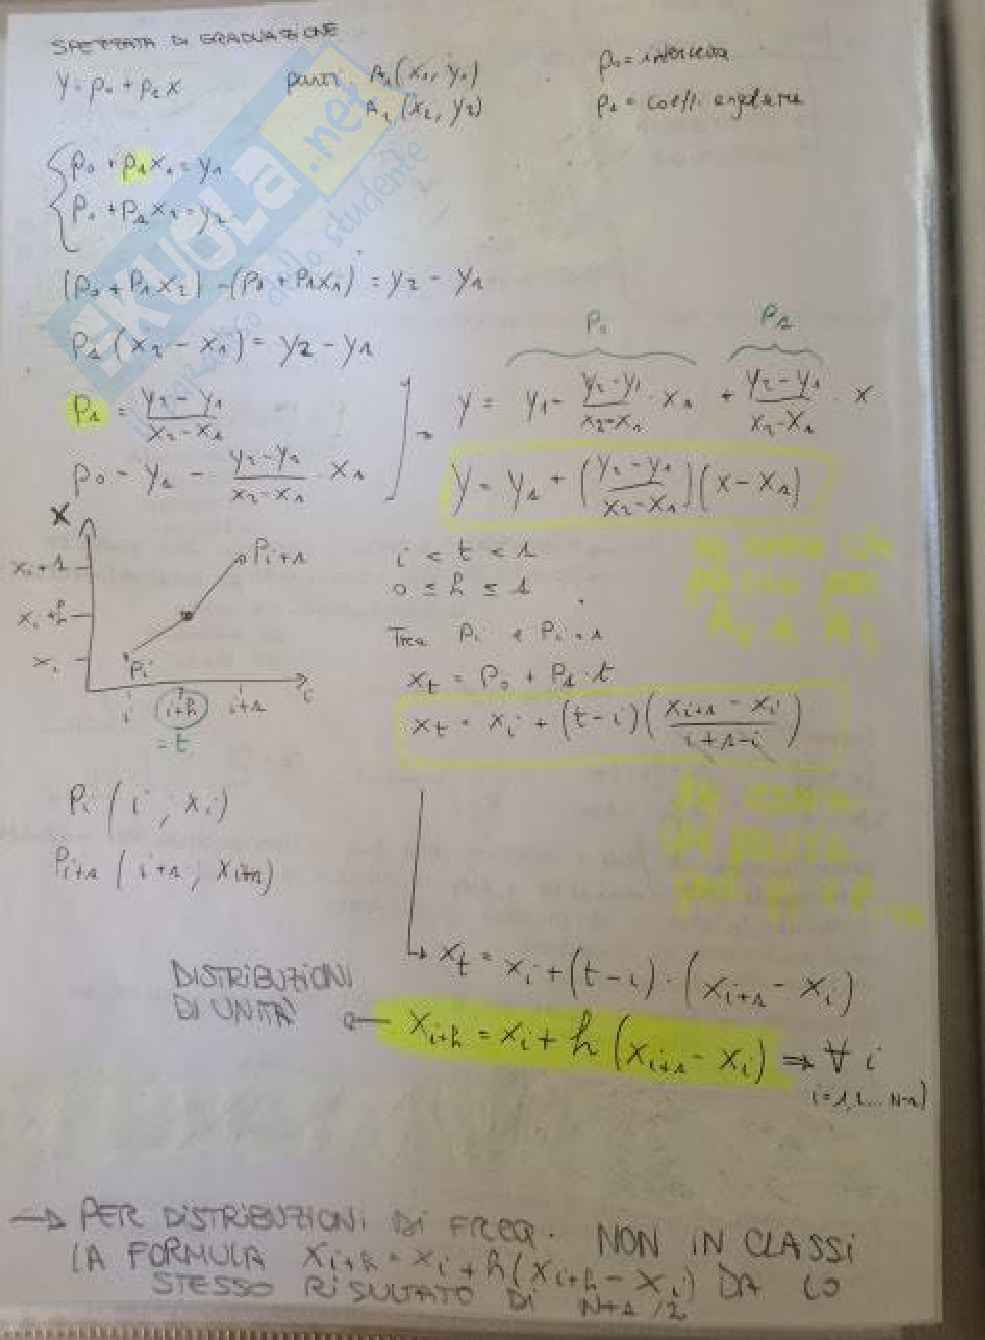 SPEZZATA DI GRADUAZIONE
y = p₀ + p₁ x
punti: A₁ (x₁, y₁)
A₂ (x₂, y₂)
p₀ = intercetta
p₁ = coeff. angolare
p₀ + p₁x₁ = y₁
p₀ + p₁x₂ = y₂
(p₀ + p₁x₂) - (p₀ + p₁x₁) = y₂ - y₁
p₁ (x₂ - x₁) = y₂ - y₁
p₁ = (y₂ - y₁)/(x₂ - x₁)
p₀ = y₁ - (y₂ - y₁)/(x₂ - x₁) · x₁
p₀ p₁
y = y₁ - (y₂ - y₁)/(x₂ - x₁) · x₁ + (y₂ - y₁)/(x₂ - x₁) · x
y = y₁ + ((y₂ - y₁)/(x₂ - x₁)) (x - x₁)
A₁ A₂
X
Pi+1
Pi
i i+h i+1 i
= t
i < t < 1
0 ≤ h ≤ 1
Tra Pi e Pi+1
xt = p₀ + p₁ · t
xt = xi + (t - i) ((xi+1 - xi)/(i + 1 - i))
Pi (i, xi)
Pi+1 (i+1, xi+1)
xt = xi + (t - i) · (xi+1 - xi)
DISTRIBUZIONI
DI UNITÀ
xi+h = xi + h (xi+1 - xi) ⇒ ∀ i
i = 1, 2... N-1
→ PER DISTRIBUZIONI DI FREQ. NON IN CLASSI
LA FORMULA xi+h = xi + h(xi+h - xi) DA LO
STESSO RISULTATO DI N+1/2
SKUOLA.net